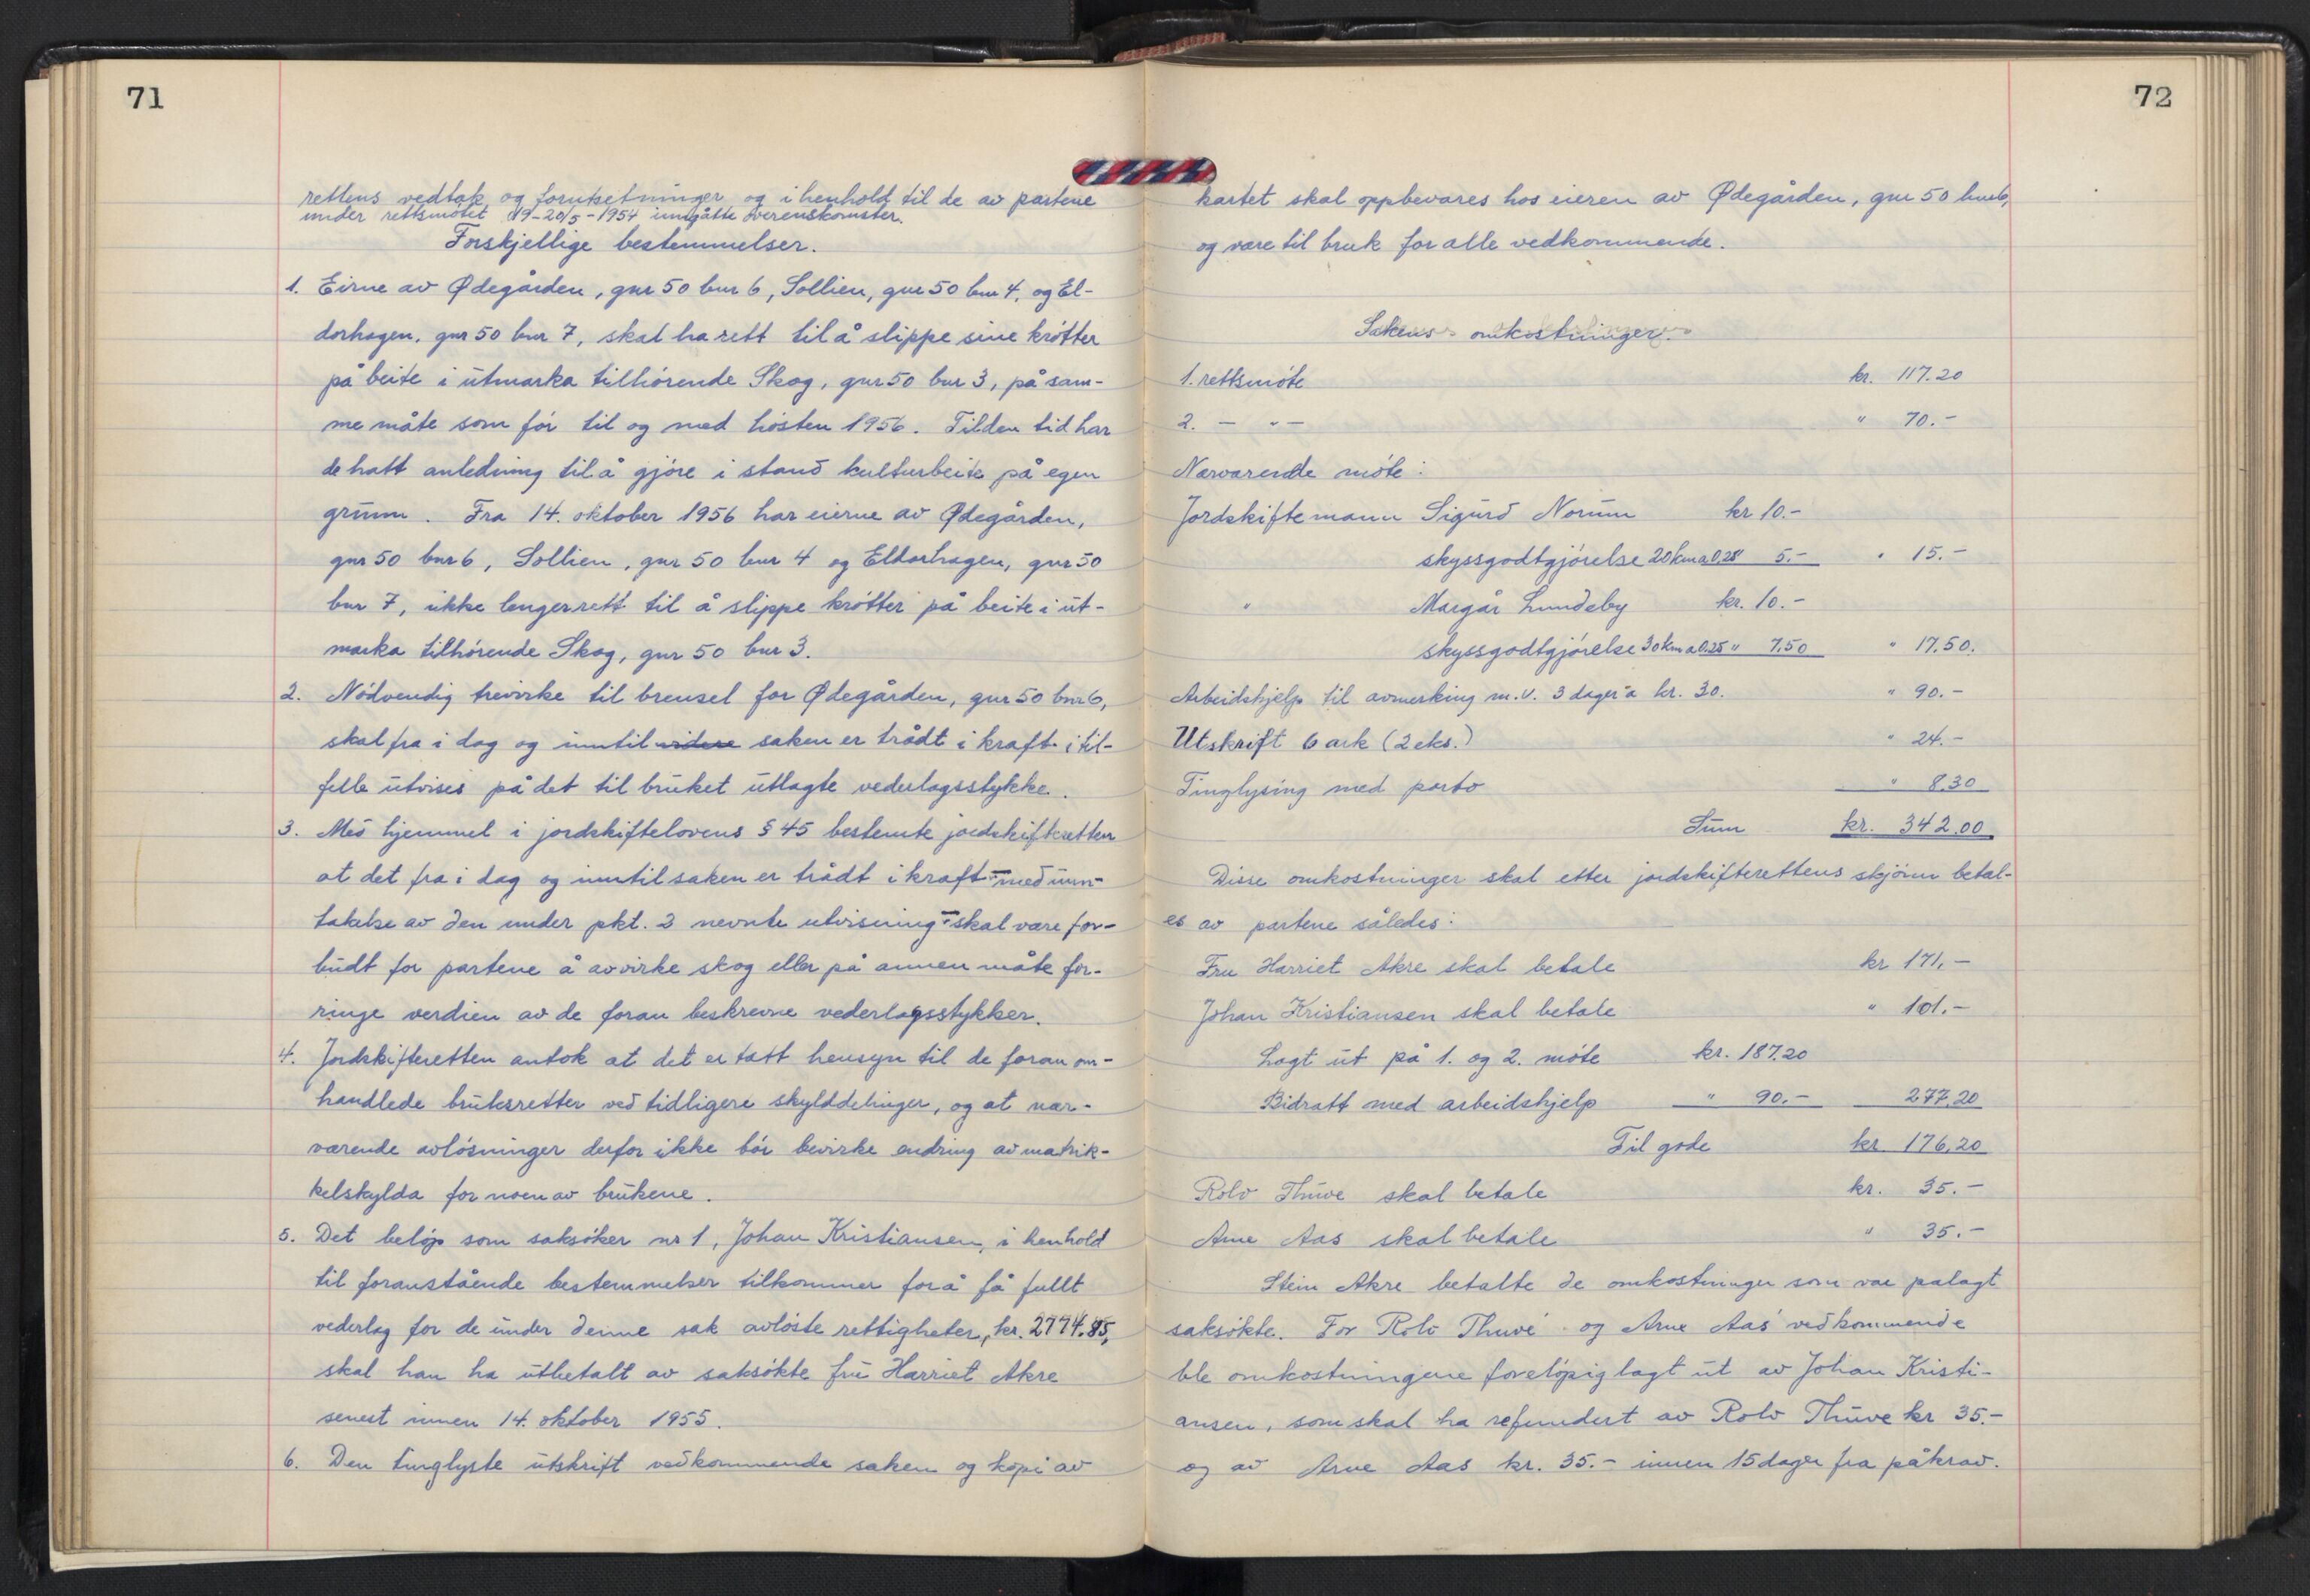 71
rettens vedtak og forutsetninger og i henhold til de av partene
under rettsmøtet 19-20/5-1954 inngåtte overenskomster.
Forskjellige bestemmelser.
1. Eirne av Ødegården, gnr 50 bnr 6, Sollien, gnr 50 bnr 4, og El-
dorhagen, gnr 50 bnr 7, skal ha rett til å slippe sine krøtter
på beite i utmarka tilhørende Skog, gnr 50 bnr 3, på sam-
me måte som før til og med høsten 1956. Til den tid har
de hatt anledning til å gjøre i stand kulturbeite på egen
grunn. Fra 14. oktober 1956 har eierne av Ødegården,
gnr 50 bnr 6, Sollien, gnr 50 bnr 4 og Eldorhagen, gnr 50
bnr 7, ikke lenger rett til å slippe krøtter på beite i ut-
marka tilhørende Skog, gnr 50 bnr 3.
2. Nødvendig trevirke til brensel for Ødegården, gnr 50 bnr 6,
skal fra i dag og inntil videre saken er trådt i kraft i til-
felle utvises på det til bruket utlagte vederlagsstykke.
3. Med hjemmel i jordskiftelovens § 45 bestemte jordskifteretten
at det fra i dag og inntil saken er trådt i kraft - med unn-
takelse av den under pkt. 2 nevnte utvisning - skal være for-
budt for partene å avvirke skog eller på annen måte for-
ringe verdien av de foran beskrevne vederlagsstykker.
4. Jordskifteretten antok at det er tatt hensyn til de foran om-
handlede bruksretter ved tidligere skylddelinger, og at nær-
værende avløsninger derfor ikke bør bevirke endring av matrik-
kelskylda for noen av brukene.
5. Det beløp som saksøker nr 1, Johan Kristiansen, i henhold
til foranstående bestemmelser tilkommer for å få fullt
vederlag for de under denne sak avløste rettigheter, kr. 2774.85,
skal han ha utbetalt av saksøkte fru Harriet Akre
senest innen 14. oktober 1955.
6. Den tinglyste utskrift vedkommende saken og kopi av
72
kartet skal oppbevares hos eieren av Ødegården, gnr 50 bnr 6,
og være til bruk for alle vedkommende.
Sakens omkostninger.
1. rettsmøte kr. 117.20
2. — " — " 70.-
Nærværende møte:
Jordskiftemann Sigurd Norum kr 10.-
skyssgodtgjørelse 20 km a 0.25 5.- " 15.-
" Margår Lundeby kr. 10.-
skyssgodtgjørelse 30 km a 0.25 " 7.50 " 17.50.
Arbeidshjelp til avmerking m.v. 3 dager a kr. 30. " 90.-
Utskrift 6 ark (2 eks.) " 24.-
Tinglysing med porto " 8.30
Sum kr. 342.00
Disse omkostninger skal etter jordskifterettens skjønn betal-
es av partene således:
Fru Harriet Akre skal betale kr 171.-
Johan Kristiansen skal betale " 101.-
Lagt ut på 1. og 2. møte kr. 187.20
Bidratt med arbeidshjelp " 90.- 277.20
Til gode kr. 176.20
Rolv Thuve skal betale kr. 35.-
Arne Aas skal betale " 35.-
Stein Akre betalte de omkostninger som var palagt
saksøkte. For Rolv Thuve og Arne Aas vedkommende
ble omkostningene foreløpig lagt ut av Johan Kristi-
ansen, som skal ha refundert av Rolv Thuve kr 35.-
og av Arne Aas kr. 35.- innen 15 dager fra påkrav.